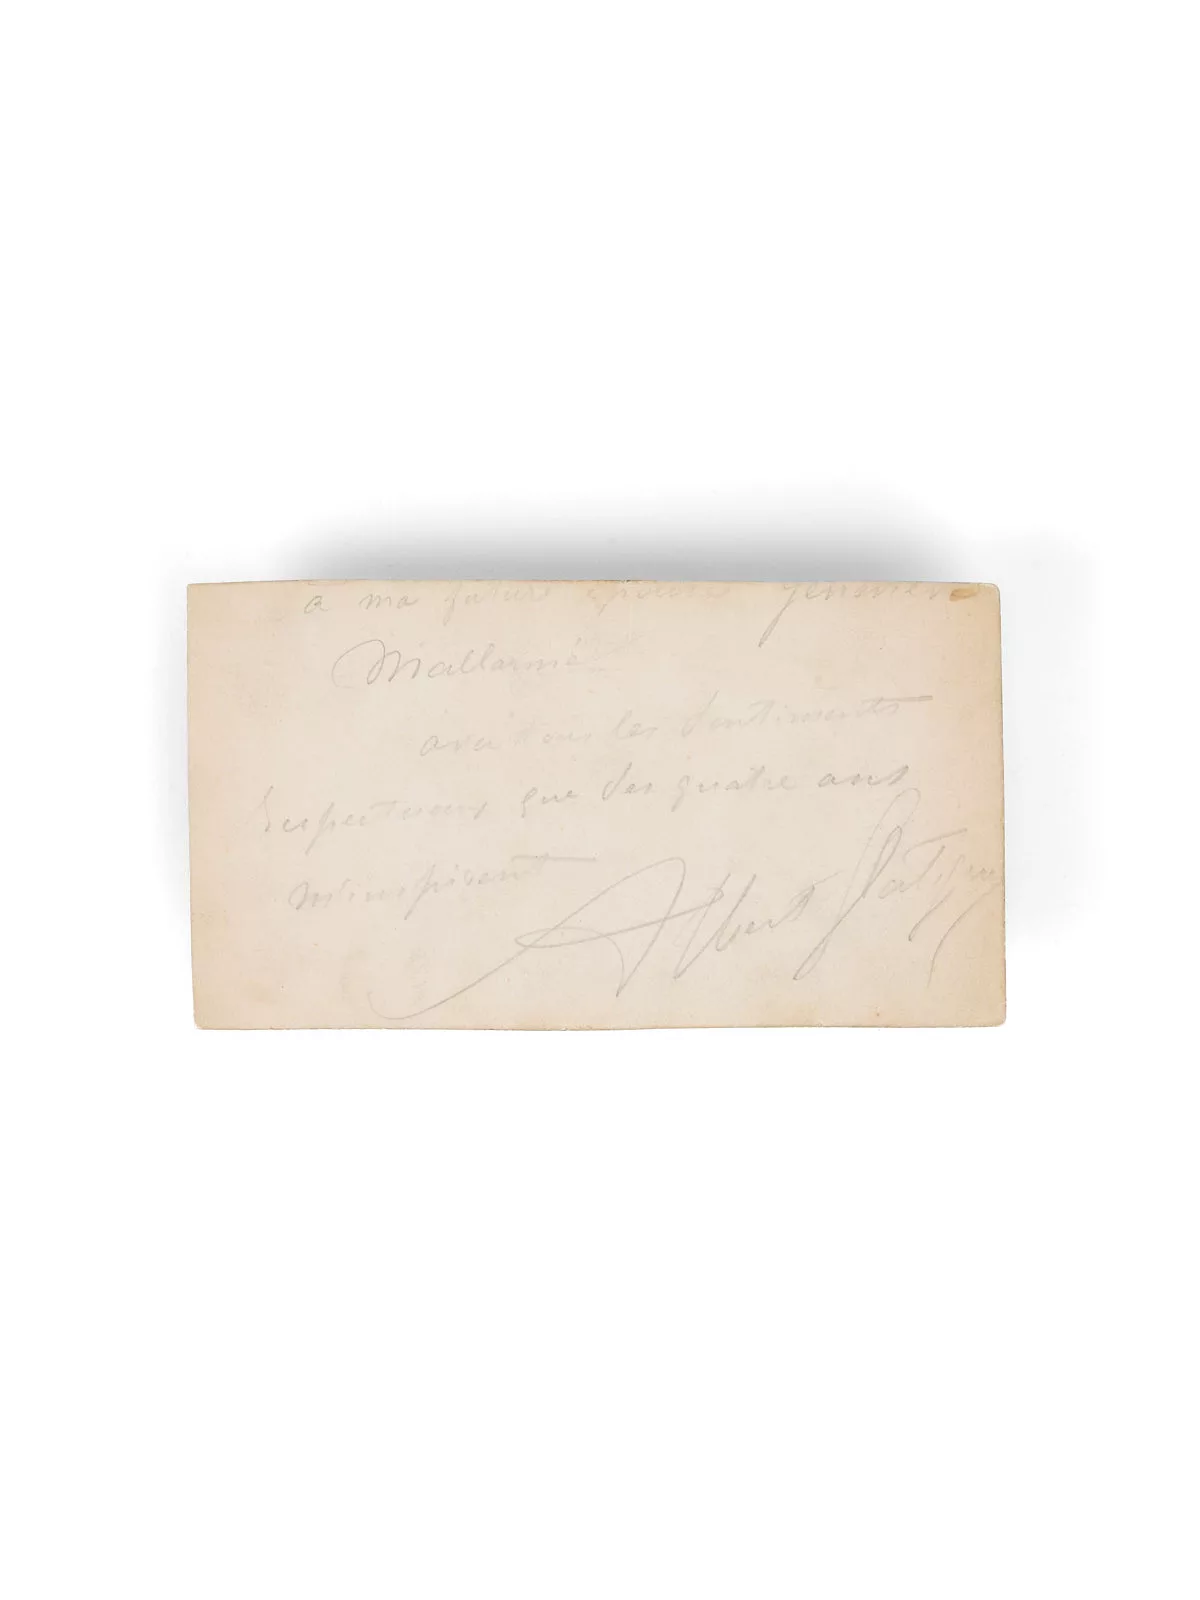 à ma future épouse Geneviève
Mallarmé
avec tous les sentiments
respectueux que ses quatre ans
m'inspirent
Albert Glatigny